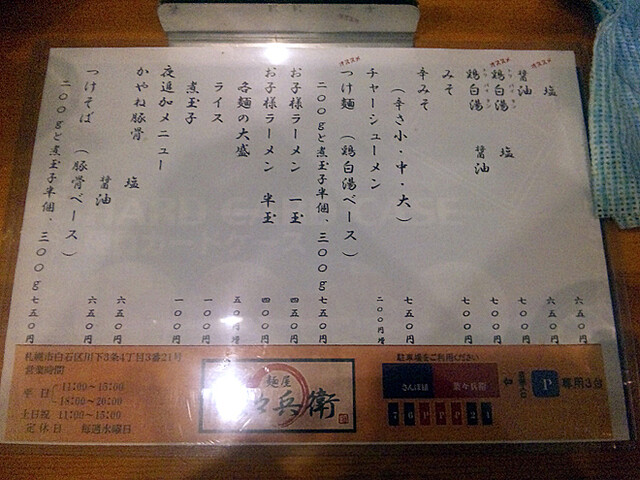 塩 六五〇円
オススメ
醤油 六五〇円
オススメ
鶏白湯 塩 七〇〇円
鶏白湯 醤油 七〇〇円
みそ 七〇〇円
辛みそ
(辛さ小・中・大) 七五〇円
チャーシューメン 二〇〇円増
オススメ
つけ麺 (鶏白湯ベース)
二〇〇gと煮玉子半個、三〇〇g 七五〇円
お子様ラーメン 一玉 四五〇円
お子様ラーメン 半玉 四〇〇円
各麺の大盛 五〇円増
ライス 一〇〇円
煮玉子 一〇〇円
夜追加メニュー
かやね豚骨 塩 六五〇円
醤油 六五〇円
つけそば (豚骨ベース)
二〇〇gと煮玉子半個、三〇〇g 七五〇円
札幌市白石区川下3条4丁目3番21号
営業時間
平日 11:00~15:00
18:00~20:00
土日祝 11:00~15:00
定休日 毎週水曜日
麺屋
々兵衛
駐車場をご利用ください
さんぱ様
菜々兵衛
P 専用3台
7 6 P P P 2 1